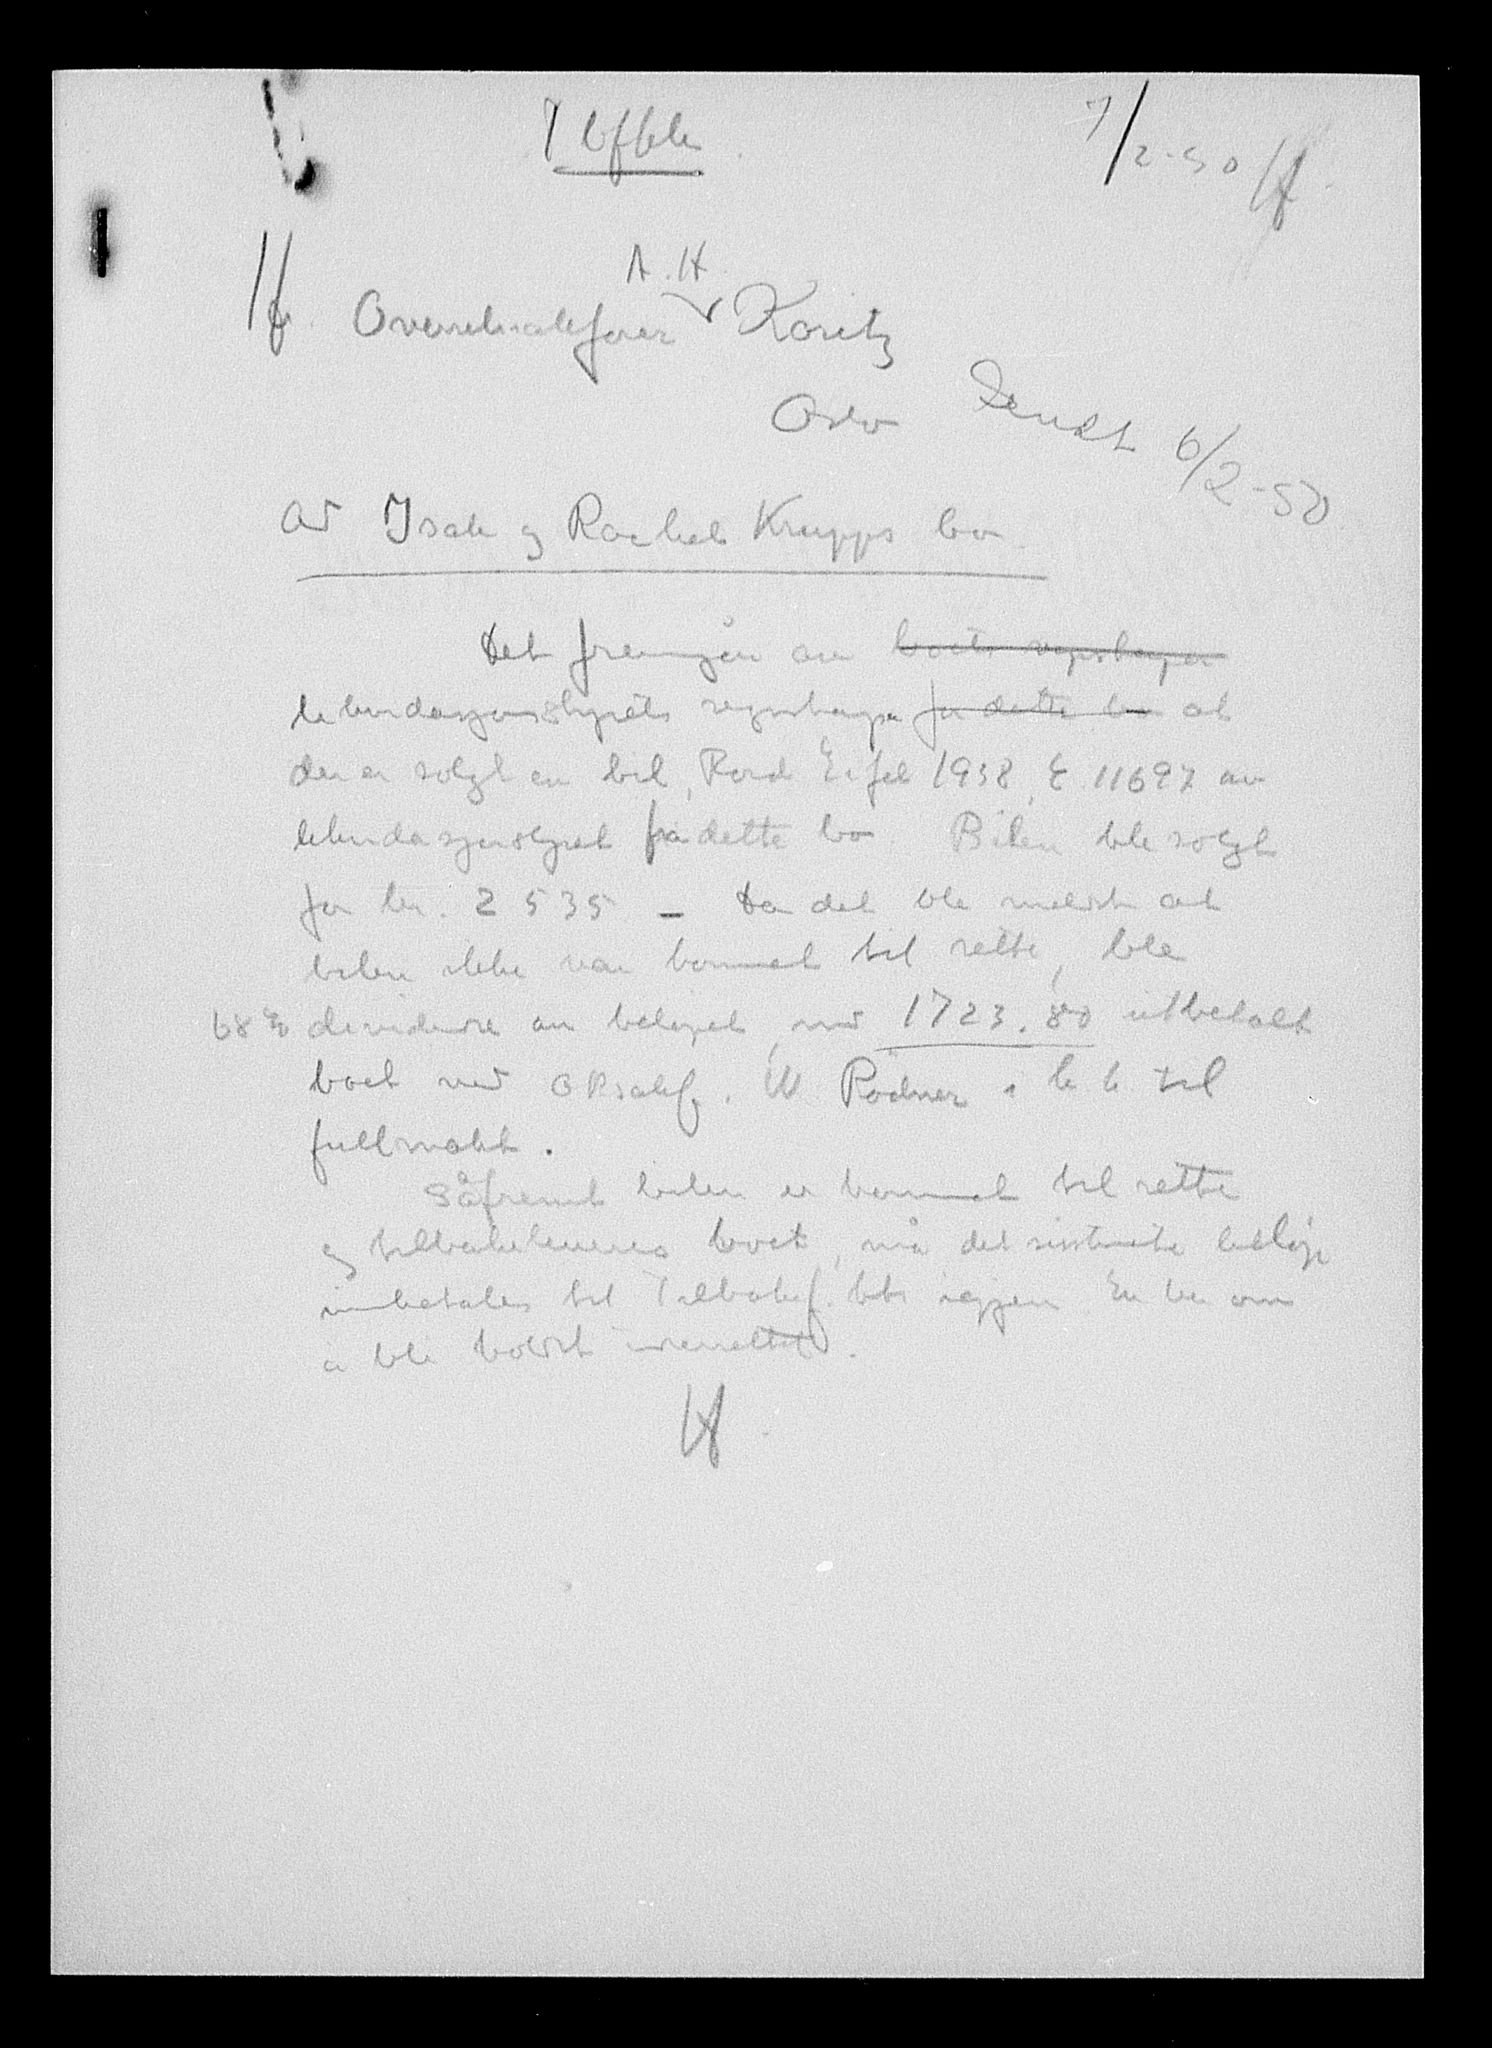 7/2-50
A. H.
Hr. Overrettssakfører Koritz
Oslo
Sendt 6/2-50
Ad Isak og Rachel Krupps bo
Det fremgår av boets regnskaper
likvidasjonsstyrets regnskaper for dette bo at
der er solgt en bil, Ford Eifel 1938, E. 11697 av
likvidasjonsstyret fra dette bo Bilen ble solgt
for kr. 2535 _ Da det ble meldt at
bilen ikke var kommet til rette, ble
68% dividende av beløpet med 1723.80 utbetalt
boet ved ORsakf. W Rödner i h. t. til
fullmakt.
Såfremt bilen er kommet til rette
og tilbakeleveres boet, må det sistnevnte beløp
innbetales til Tilbakef. ktr igjen En ber om
å bli holdt underrettet.